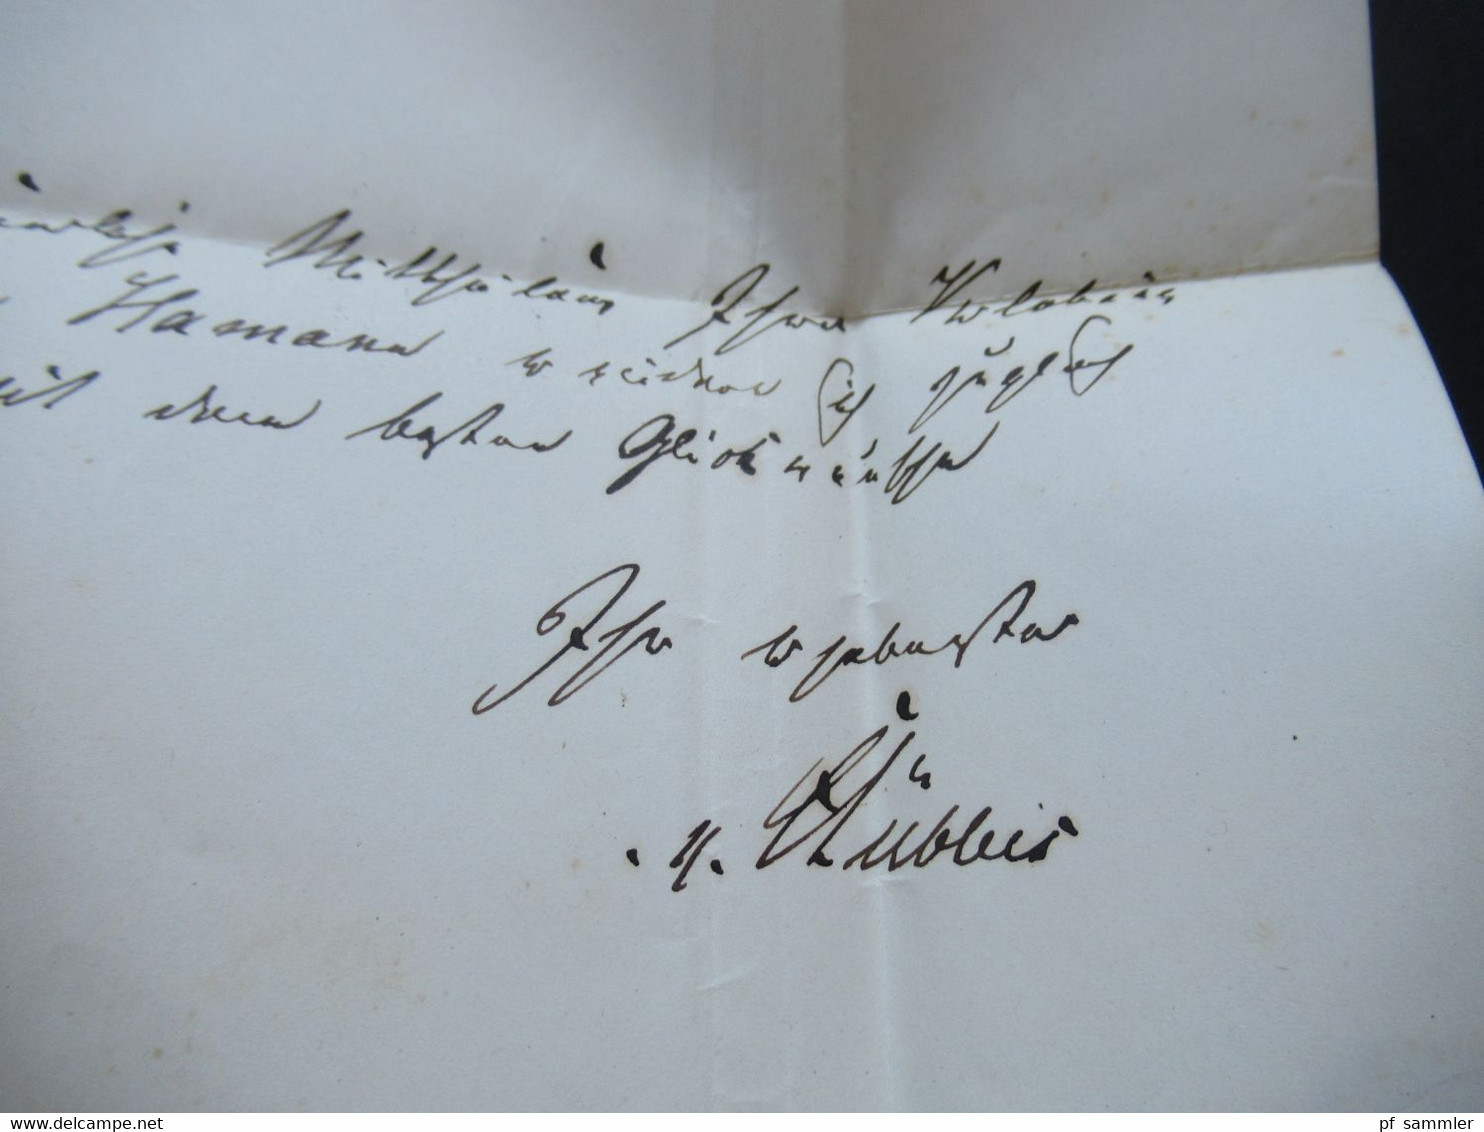 Mittheilung Ihrer Verlobung
Hamann erwiedere ich zugleich
mit den besten Glückwünschen
Ihr ergebenster
v. Stübbeis
www.delcampe.net
pf_sammler